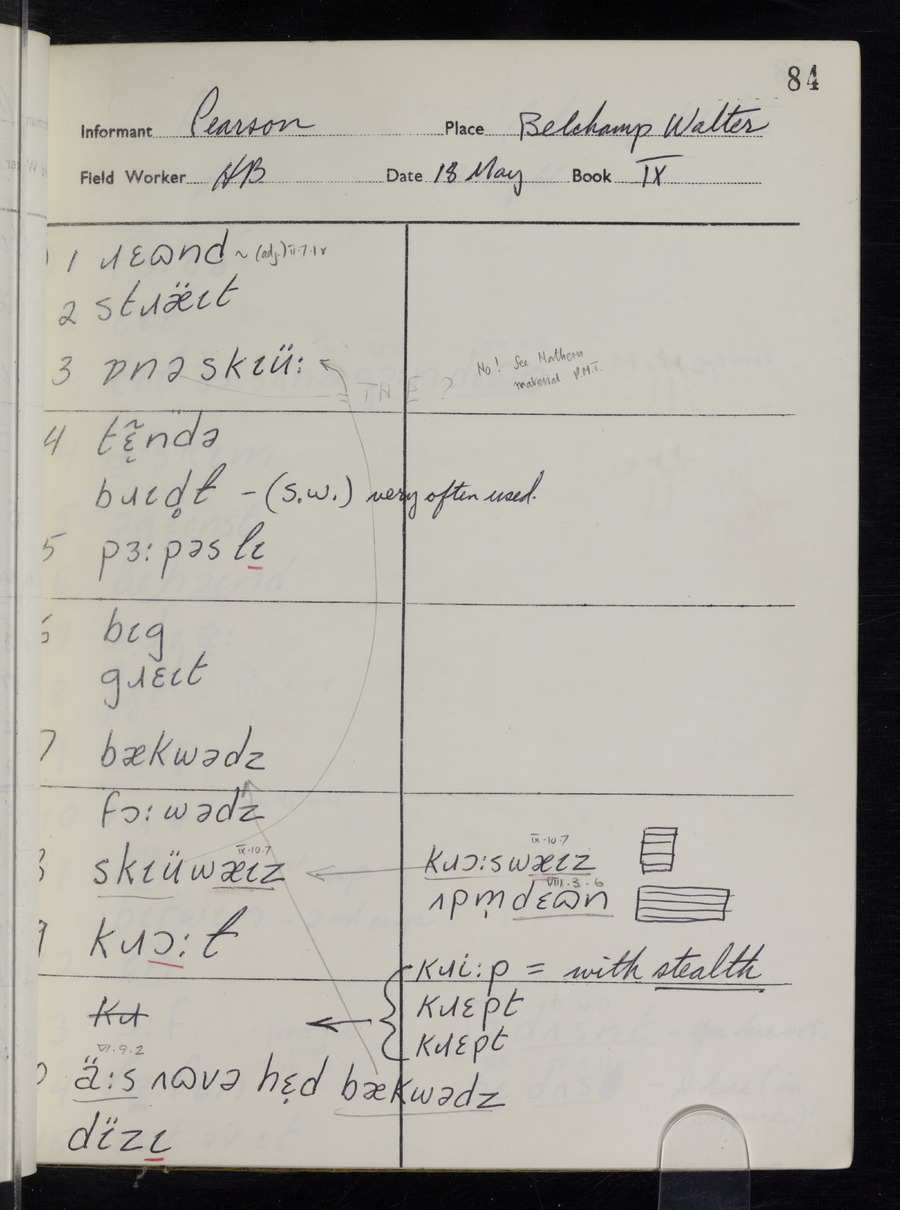 84
Informant Pearson Place Belchamp Walter
Field Worker HB Date 18 May Book IX
1 ɹɛɷnd ~ (adj.)
2 stɹæ̈ɪt
3 ɒnə skɪü: = THE? No! See Northern
material. P.M.T.
4 tɛ̝̃ndə
bɹɪd̥ł - (s.w.) very often used.
5 pɜ:pəslɪ
6 bɪg
gɹɛɪt
7 bækwədz
fɔ:wədz
IX.10.7 IX.10.7
8 skɪüwæɪz kɹɔ:swæɪz
VIII.3.6
ʌpm̩dɛɷn
9 kɹɔ:ł
kɹi:p = with stealth
kɹ kɹɛpt
kɹɛpt
VI.9.2
0 ä:s ʌɷvə hɛ̝d bækwədz
dïzɪ